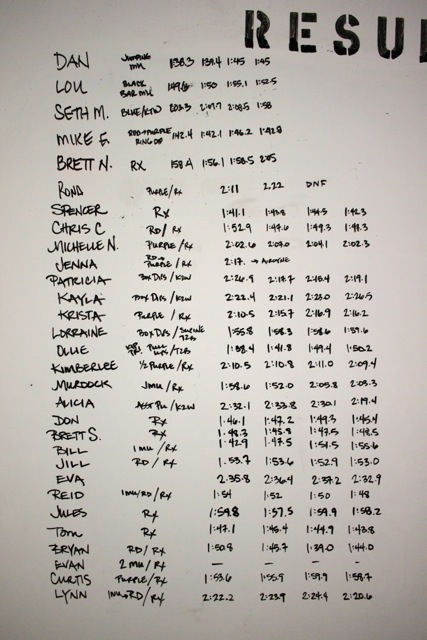 RESU
DAN 1:38.3 139.4 1:45 1:45
LOU BLACK BAR MU 1:50 1:55.1 1:52.5
SETH M. 2:08.5 1:58
MIKE F. 142.4 1:42.1 1:46.2
BRETT N. RX 158.4 1:56.1 1:58.5 2:05
ROND PURPLE/RX 2:11 2.22 DNF
SPENCER RX 1:41.1 1:42.3
CHRIS C RD/RX 1:52.9 1:47.6 1:49.3 1:48.3
MICHELLE N. PURPLE/RX 2:02.6 2:07.0 2:04.1 2:02.3
JENNA RD PURPLE/RX 2:17.
PATRICIA 2:26.9 2:18.4 2:19.1
KAYLA 2:22.4 2:21.1 2:23.0 2:26.5
KRISTA PURPLE/RX 2:10.5 2:15.7 2:16.9 2:16.2
LORRAINE 1:55.8 1:58.3 1:58.6 1:59.6
OLLIE 1:38.4 1:41.8 1:49.4 1:50.2
KIMBERLEE 1/2 PURPLE/RX 2:10.5 2:10.8 2:11.0 2:09.4
MURDOCK JMU/RX 1:58.6 1:52.0 2:05.8 2:03.3
ALICIA 2:32.1 2:33.8 2:30.1 2:19.4
DON RX 1:46.1 1:47.2 1:49.3 1:45.4
BRETT S. RX 1:48.3 1:45.8 1:47.5 1:48.5
BILL 1 MU/RX 1:42.9 1:47.5 1:51.5 1:55.6
JILL RD/RX 1:53.7 1:53.6 1:52.9 1:53.0
EVA 2:35.8 2:36.4 2:37.2 2:32.9
REID 1MU/RD/RX 1:54 1:52 1:50 1:48
JULES RX 1:59.8 1:57.5 1:59.9 1:58.2
TOM RX 1:47.1 1:45.4 1:44.9 1:43.8
BRYAN RD/RX 1:50.8 1:45.7 1:39.0 1:44.0
EVAN 2 MU/RX — — — —
CURTIS PURPLE/RX 1:53.6 1:55.9 1:59.9 1:58.7
LYNN RD/RX 2:22.2 2:23.9 2:24.4 2:20.6